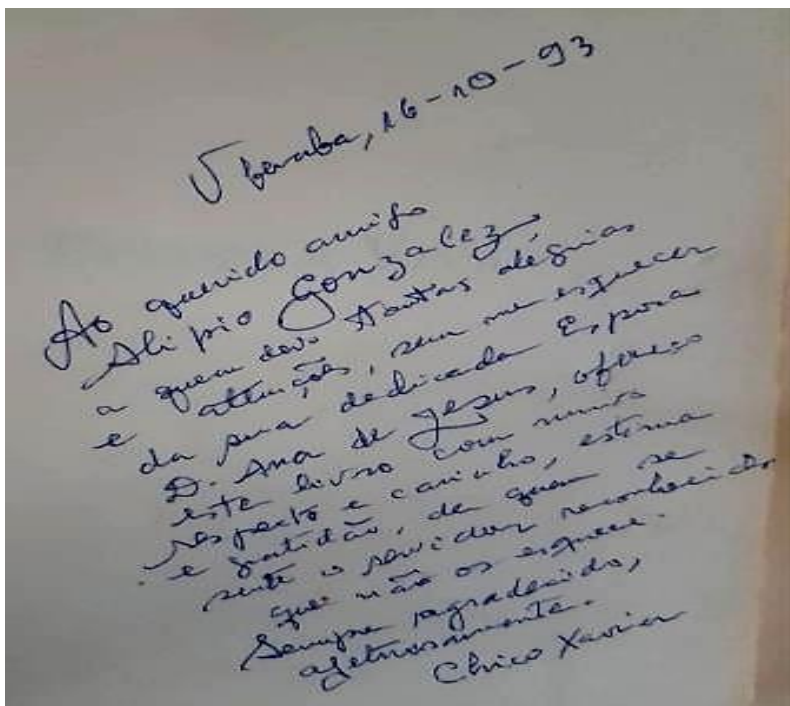 Uberaba, 16-10-93
Ao querido amigo
Alipio Gonzalez,
a quem devo tantas alegrias
e atenções, sem me esquecer
da sua dedicada Esposa
D. Ana de Jesus, ofereço
este livro com
respeito e carinho, estima
e gratidão, de quem se
sente o servidor reconhecido,
que não os esquece.
Sempre agradecido,
afetuosamente.
Chico Xavier